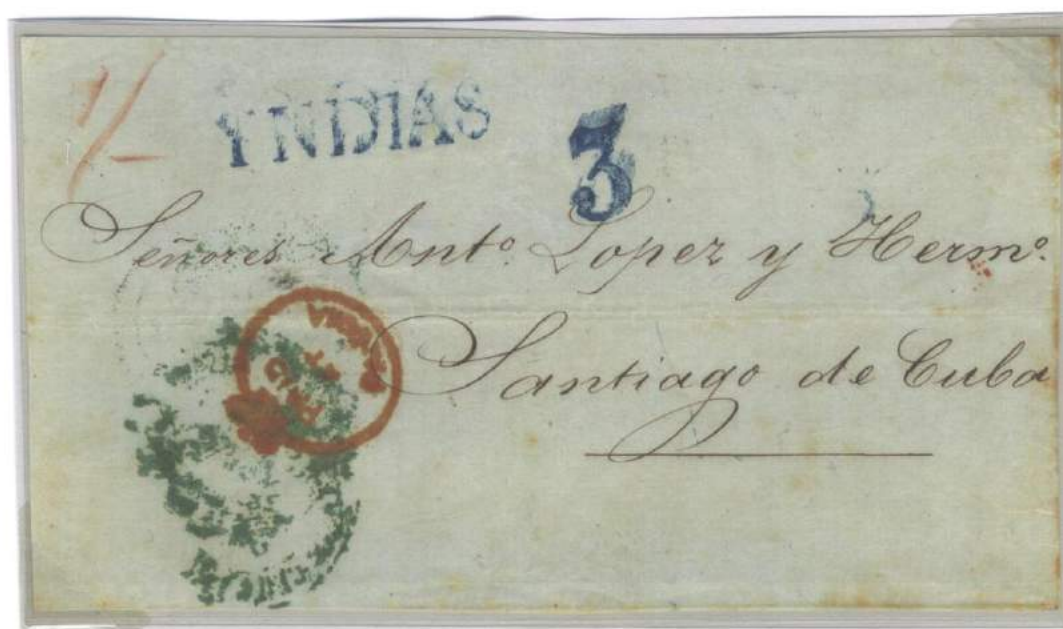 1/-
YNDIAS
3
Señores Antº Lopez y Hermº.
Santiago de Cuba